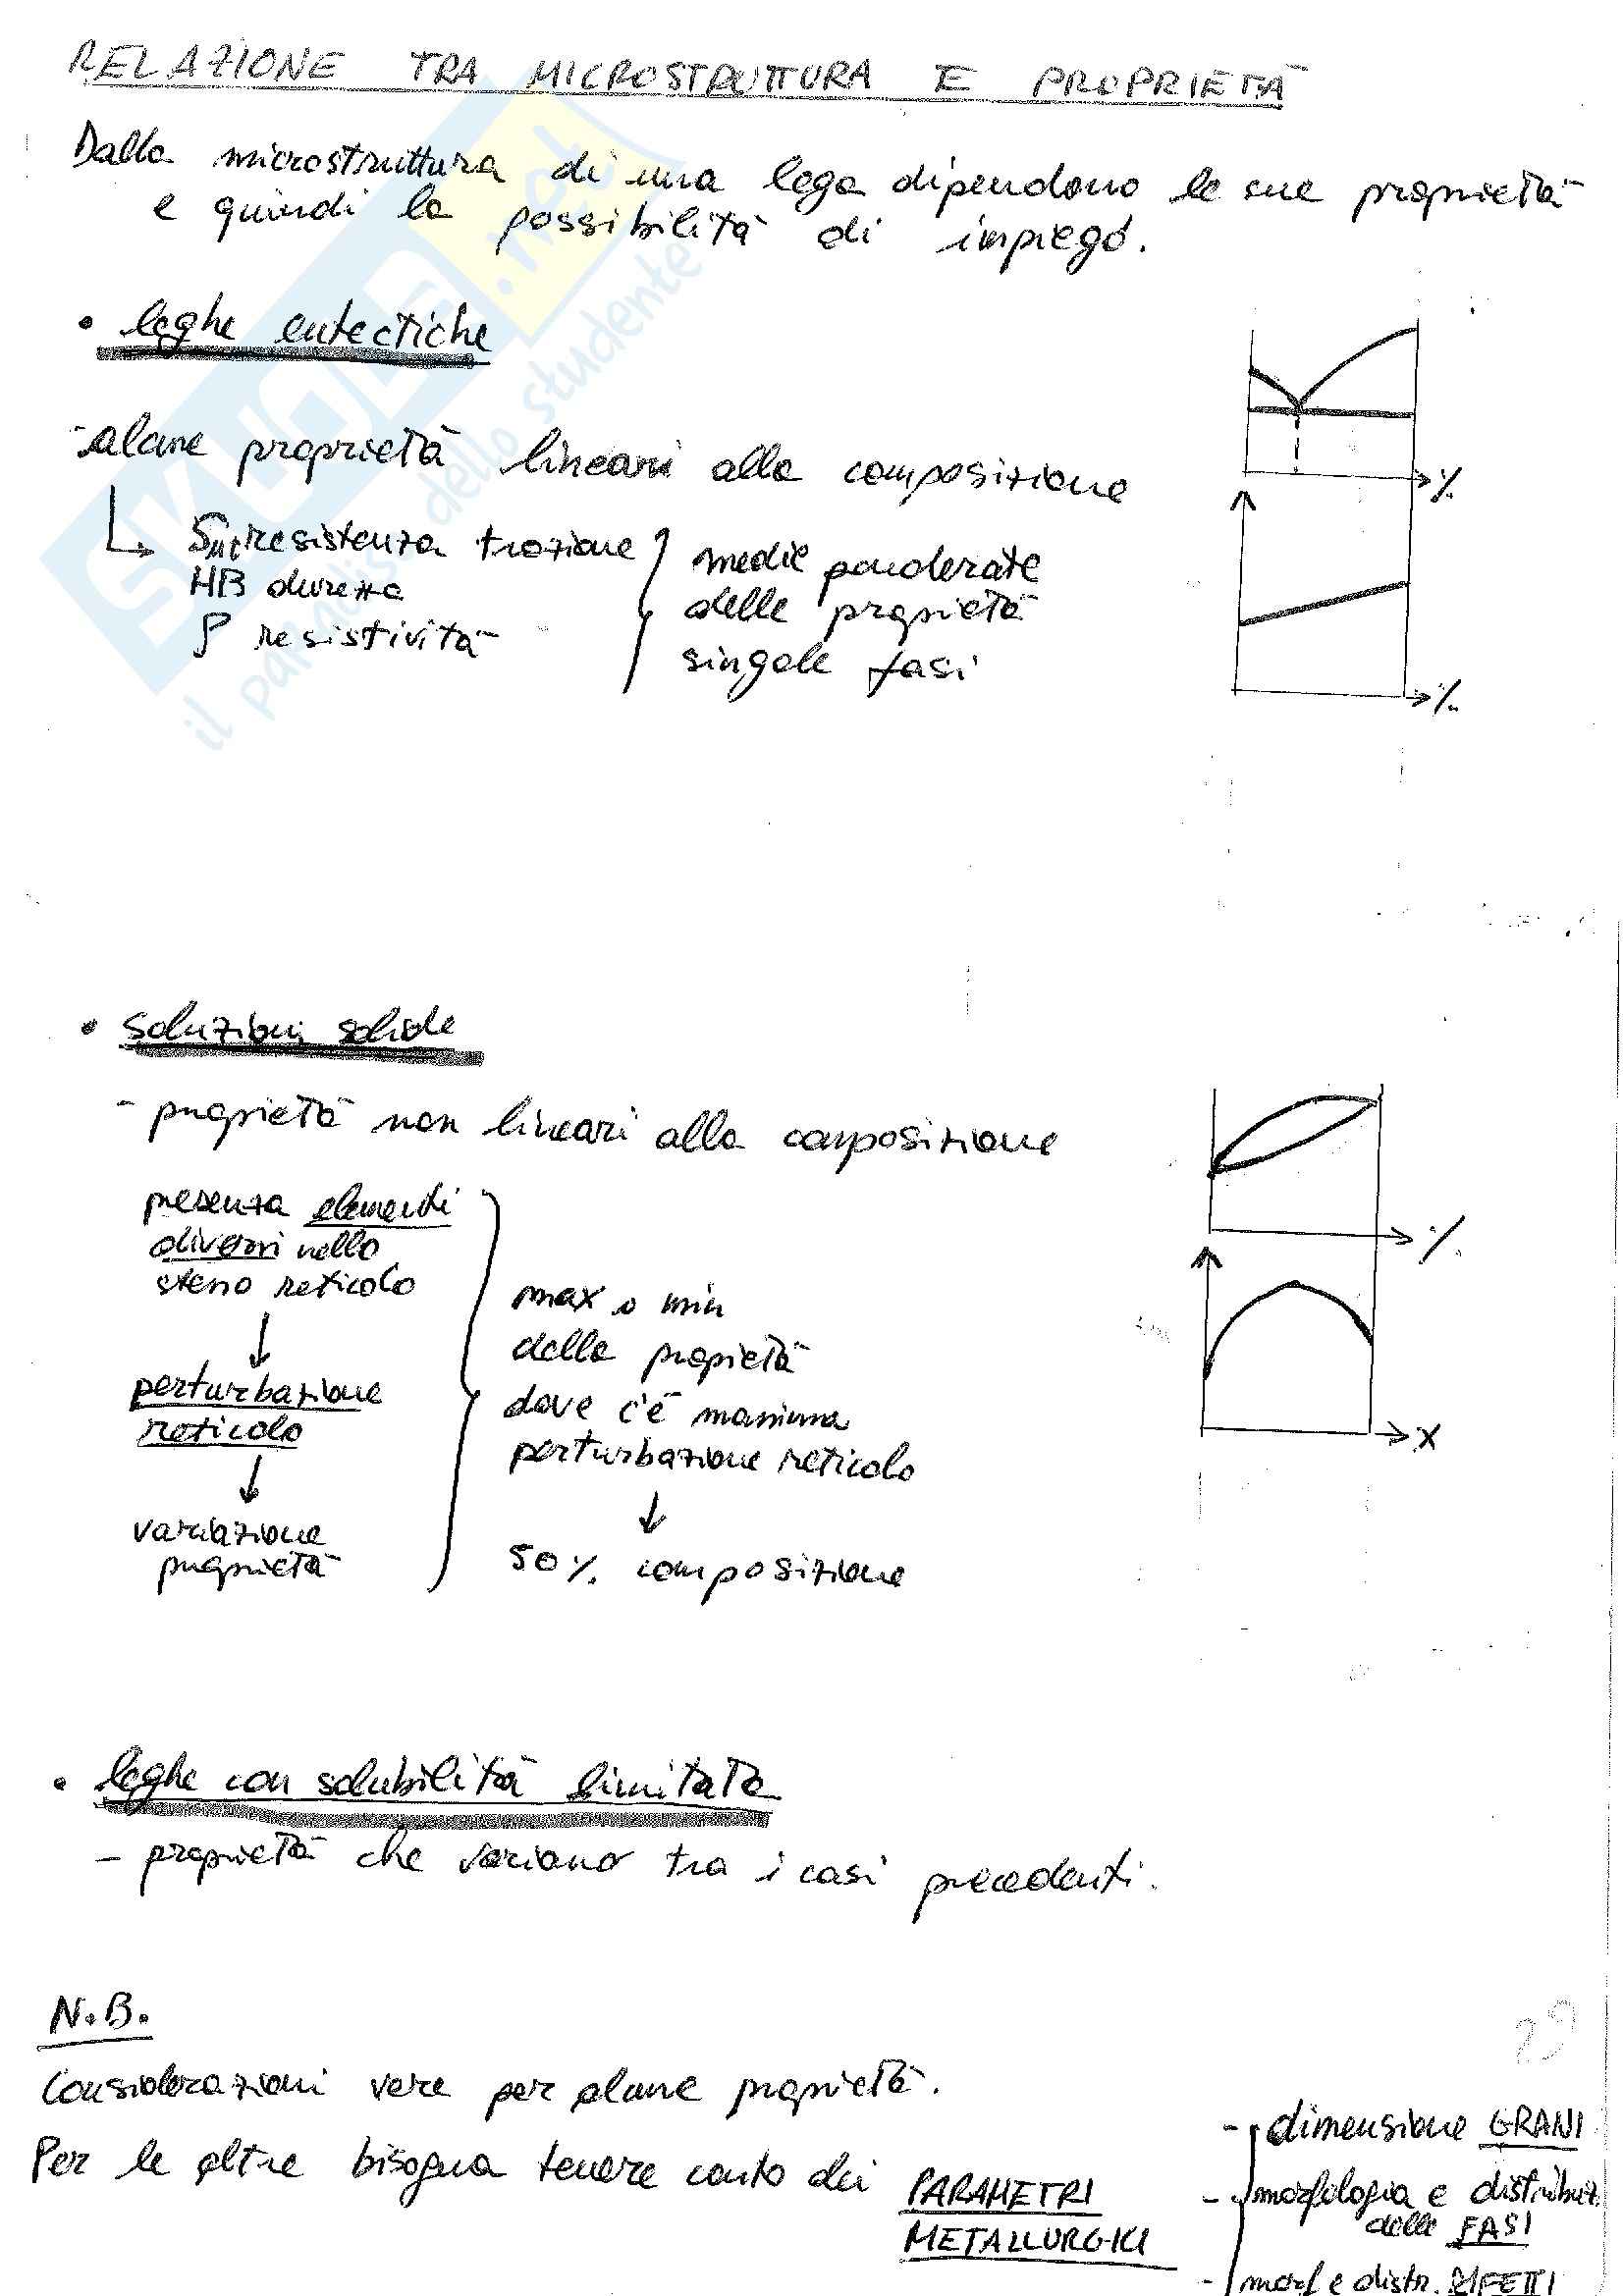 RELAZIONE TRA MICROSTRUTTURA E PROPRIETÀ
Dalla microstruttura di una lega dipendono le sue proprietà
e quindi la possibilità di impiego.
• leghe eutectiche
- alcune proprietà lineari alla composizione
Smt resistenza trazione
HB durezza
ρ resistività
medie ponderate
delle proprietà
singole fasi
%
%
• soluzioni solide
- proprietà non lineari alla composizione
presenza elementi
diversi nello
stesso reticolo
↓
perturbazione
reticolo
↓
variazione
proprietà
max o min
della propietà
dove c'è massima
perturbazione reticolo
↓
50% composizione
%
X
• leghe con solubilità limitata
- proprietà che variano tra i casi precedenti.
N.B.
Considerazioni vere per alcune proprietà.
Per le altre bisogna tenere conto dei PARAMETRI
METALLURGICI
- dimensione GRANI
- morfologia e distribuz.
delle FASI
- morf e distr. DIFETTI
29
SKUOLA.net
il paradiso dello studente